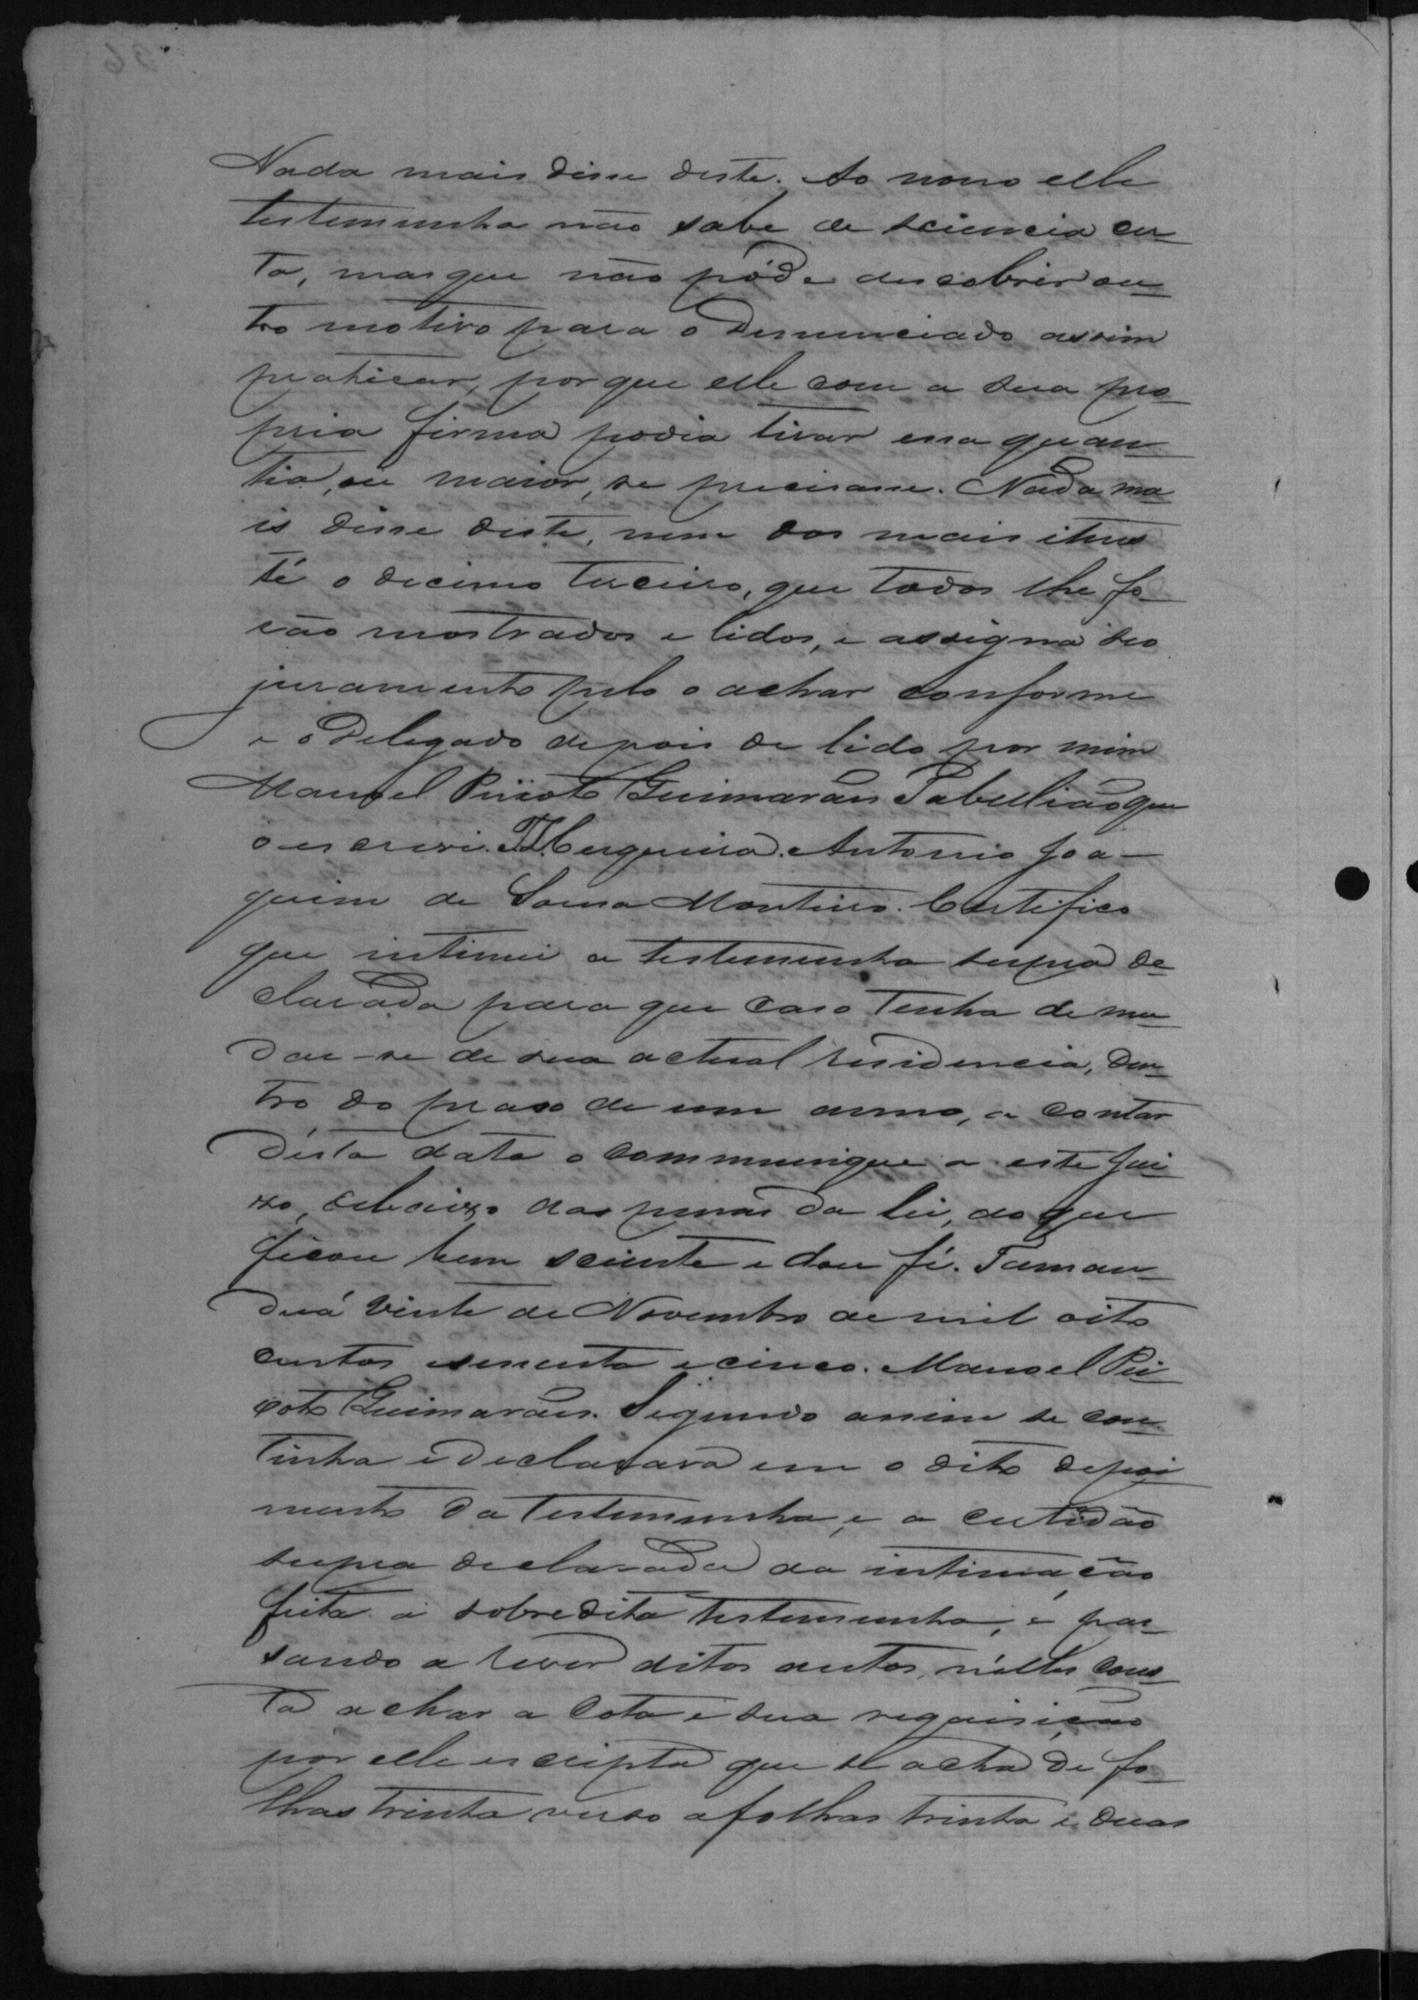 Nada mais disse deste. Ao nono elle
testemunha não sabe de sciencia cer-
ta, mas que não póde descobrir ou-
tro motivo para o Denunciado assim
praticar, por que elle com a sua pro-
pria firma podia tirar essa quan-
tia, ou maior, se precisasse. Nada ma-
is disse deste, nem dos mais itens
té o decimo terceiro, que todos lhe fo-
rão mostrados e lidos, e assigna seo
juramento pelo o achar conforme
e o Delegado depois de lido por mim
Manoel Peixoto Guimarães Tabellião que
o escrevi. Cerqueira. Antonio Joa-
quim de Sousa Monteiro. Certifico
que intimei a testemunha supra de-
clarada para que caso tenha de mu-
dar-se de sua actual residencia, den-
tro do praso de um anno, a contar
désta data o communique a este Jui-
zo, debaixo das penas da lei, do que
ficou bem sciente e dou fé. Taman-
duá vinte de Novembro de mil oito
centos esessenta e cinco. Manoel Pei-
xoto Guimarães. Segundo assim se con-
tinha e declarava em o dito depoi
mento da testemunha, e a certidão
supra declarada da intimação
feita a sobredita testemunha, e pas-
sando a rever ditos autos, n'elles cons-
ta achar a cota e sua requisição
por elle escripta que se acha de fo-
lhas trinta verso a folhas trinta e duas